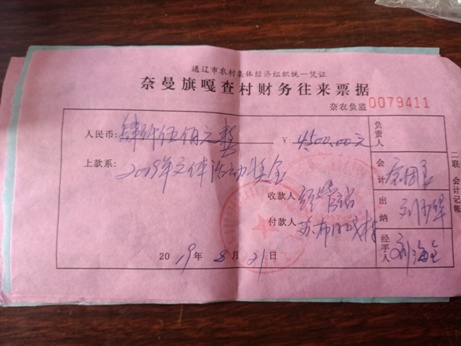 通辽市农村集体经济组织统一凭证
奈曼旗嘎查村财务往来票据
奈农负监 0079411
人民币: 肆仟伍佰元整 ￥ 4500.00元
上款系: 2019年文体活动奖金
收款人
付款人
2019年8月21日
负责人
会计
出纳
经手人 刘海全
二联 会计记账